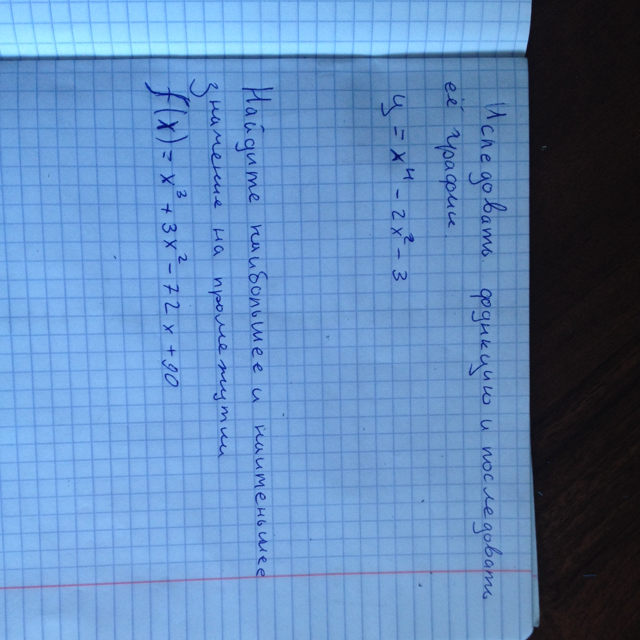 Исследовать функцию и последовать
её график
y = x⁴ - 2x² - 3
Найдите наибольшее и наименьшее
значение на промежутки
f(x) = x³ + 3x² - 72x + 90